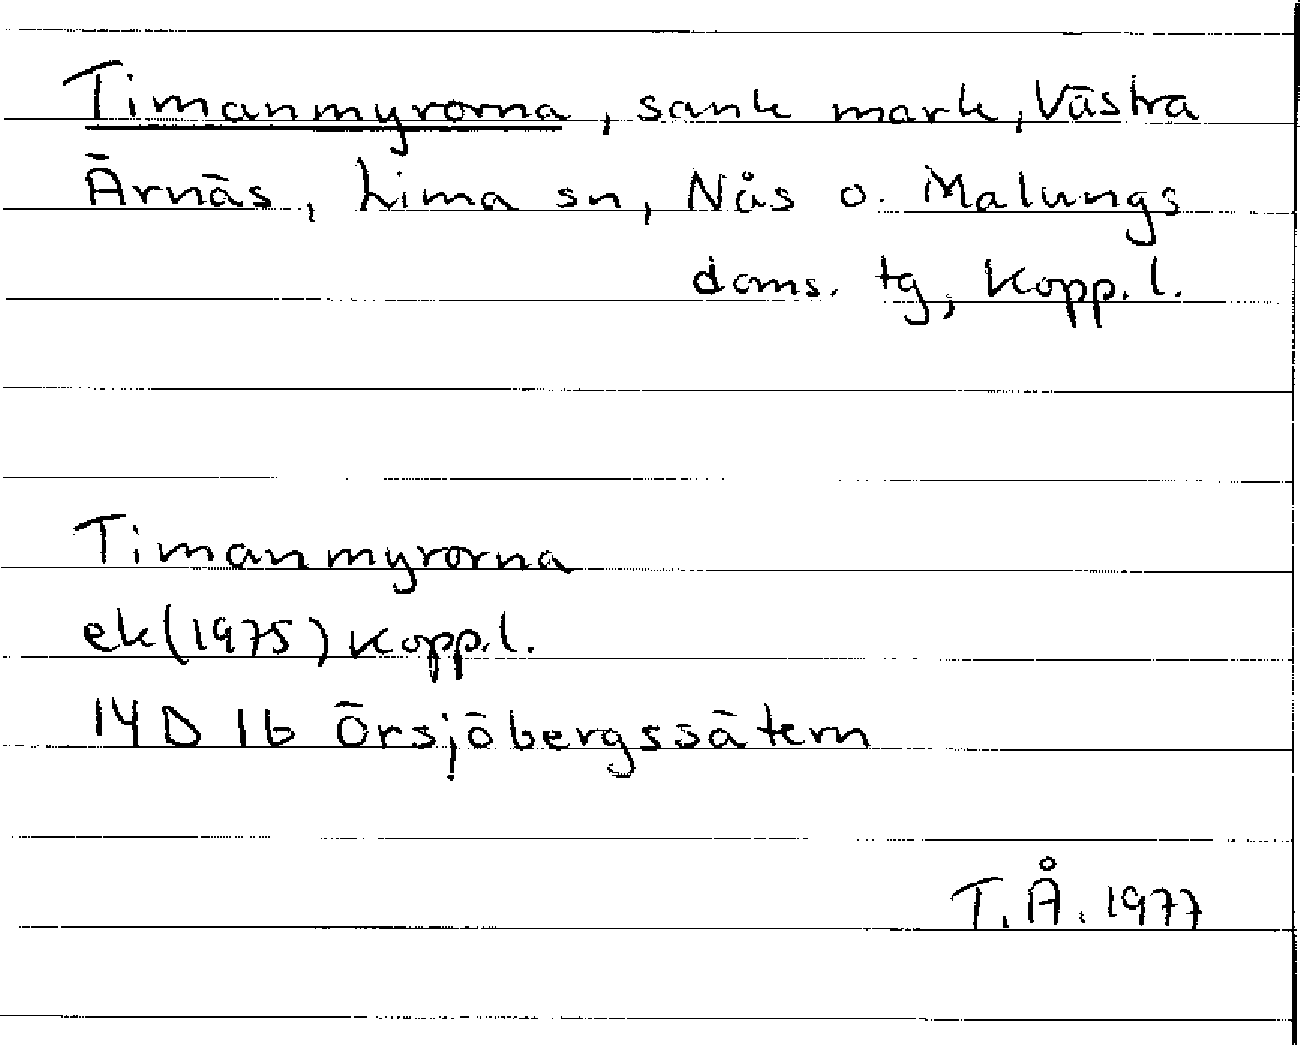 Timanmyrorna, sank mark, Västra
Ärnäs, Lima sn, Nås o. Malungs
doms. tg, Kopp. l.
Timanmyrorna
ek (1975) Kopp. l.
14 D 1b Örsjöbergssätern
T. Å. 1977